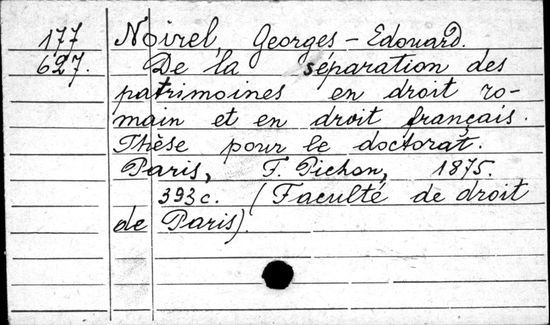 177 Noirel, Georges-Edouard.
627. De la séparation des
patrimoines en droit ro-
main et en droit français.
Thèse pour le doctorat.
Paris, F. Pichon, 1875.
393c. (Faculté de droit
de Paris).